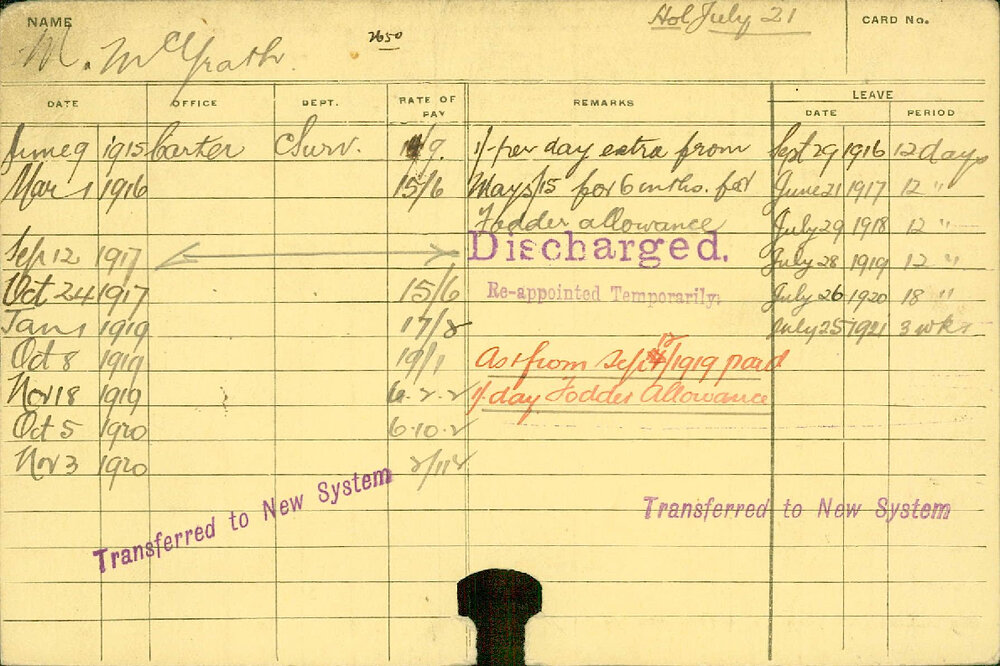 NAME M. McGrath. 2650 Hol July 21 CARD No.
DATE OFFICE DEPT. RATE OF PAY REMARKS LEAVE
DATE PERIOD
June 9 1915 Carter Surv. 14/9. 1/- per day extra from Sept 29 1916 12 days
Mar 1 1916 15/6 May 5/15 for 6 mths. for June 21 1917 12 "
Fodder allowance July 29 1918 12 "
Sep 12 1917 Discharged. July 28 1919 12 "
Oct 24 1917 15/6 Re-appointed Temporarily. July 26 1920 18 "
Jan 1 1919 17/2 July 25 1921 3 wks
Oct 8 1919 19/1 As from Sept 1919 paid
Nov 18 1919 6.2.2 1/- day Fodder Allowance
Oct 5 1920 6.10.2
Nov 3 1920
Transferred to New System Transferred to New System